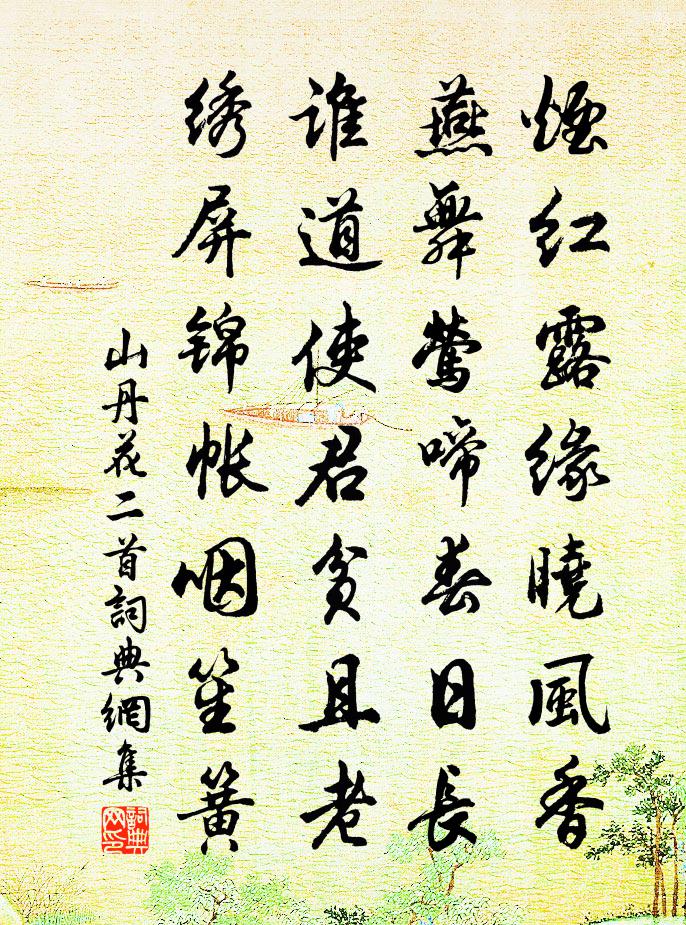 煙紅露緣曉風香
燕舞鶯啼春日長
誰道使君貧且老
绣屏锦帐咽笙簧
山丹花二首詞典網集
詞典网印